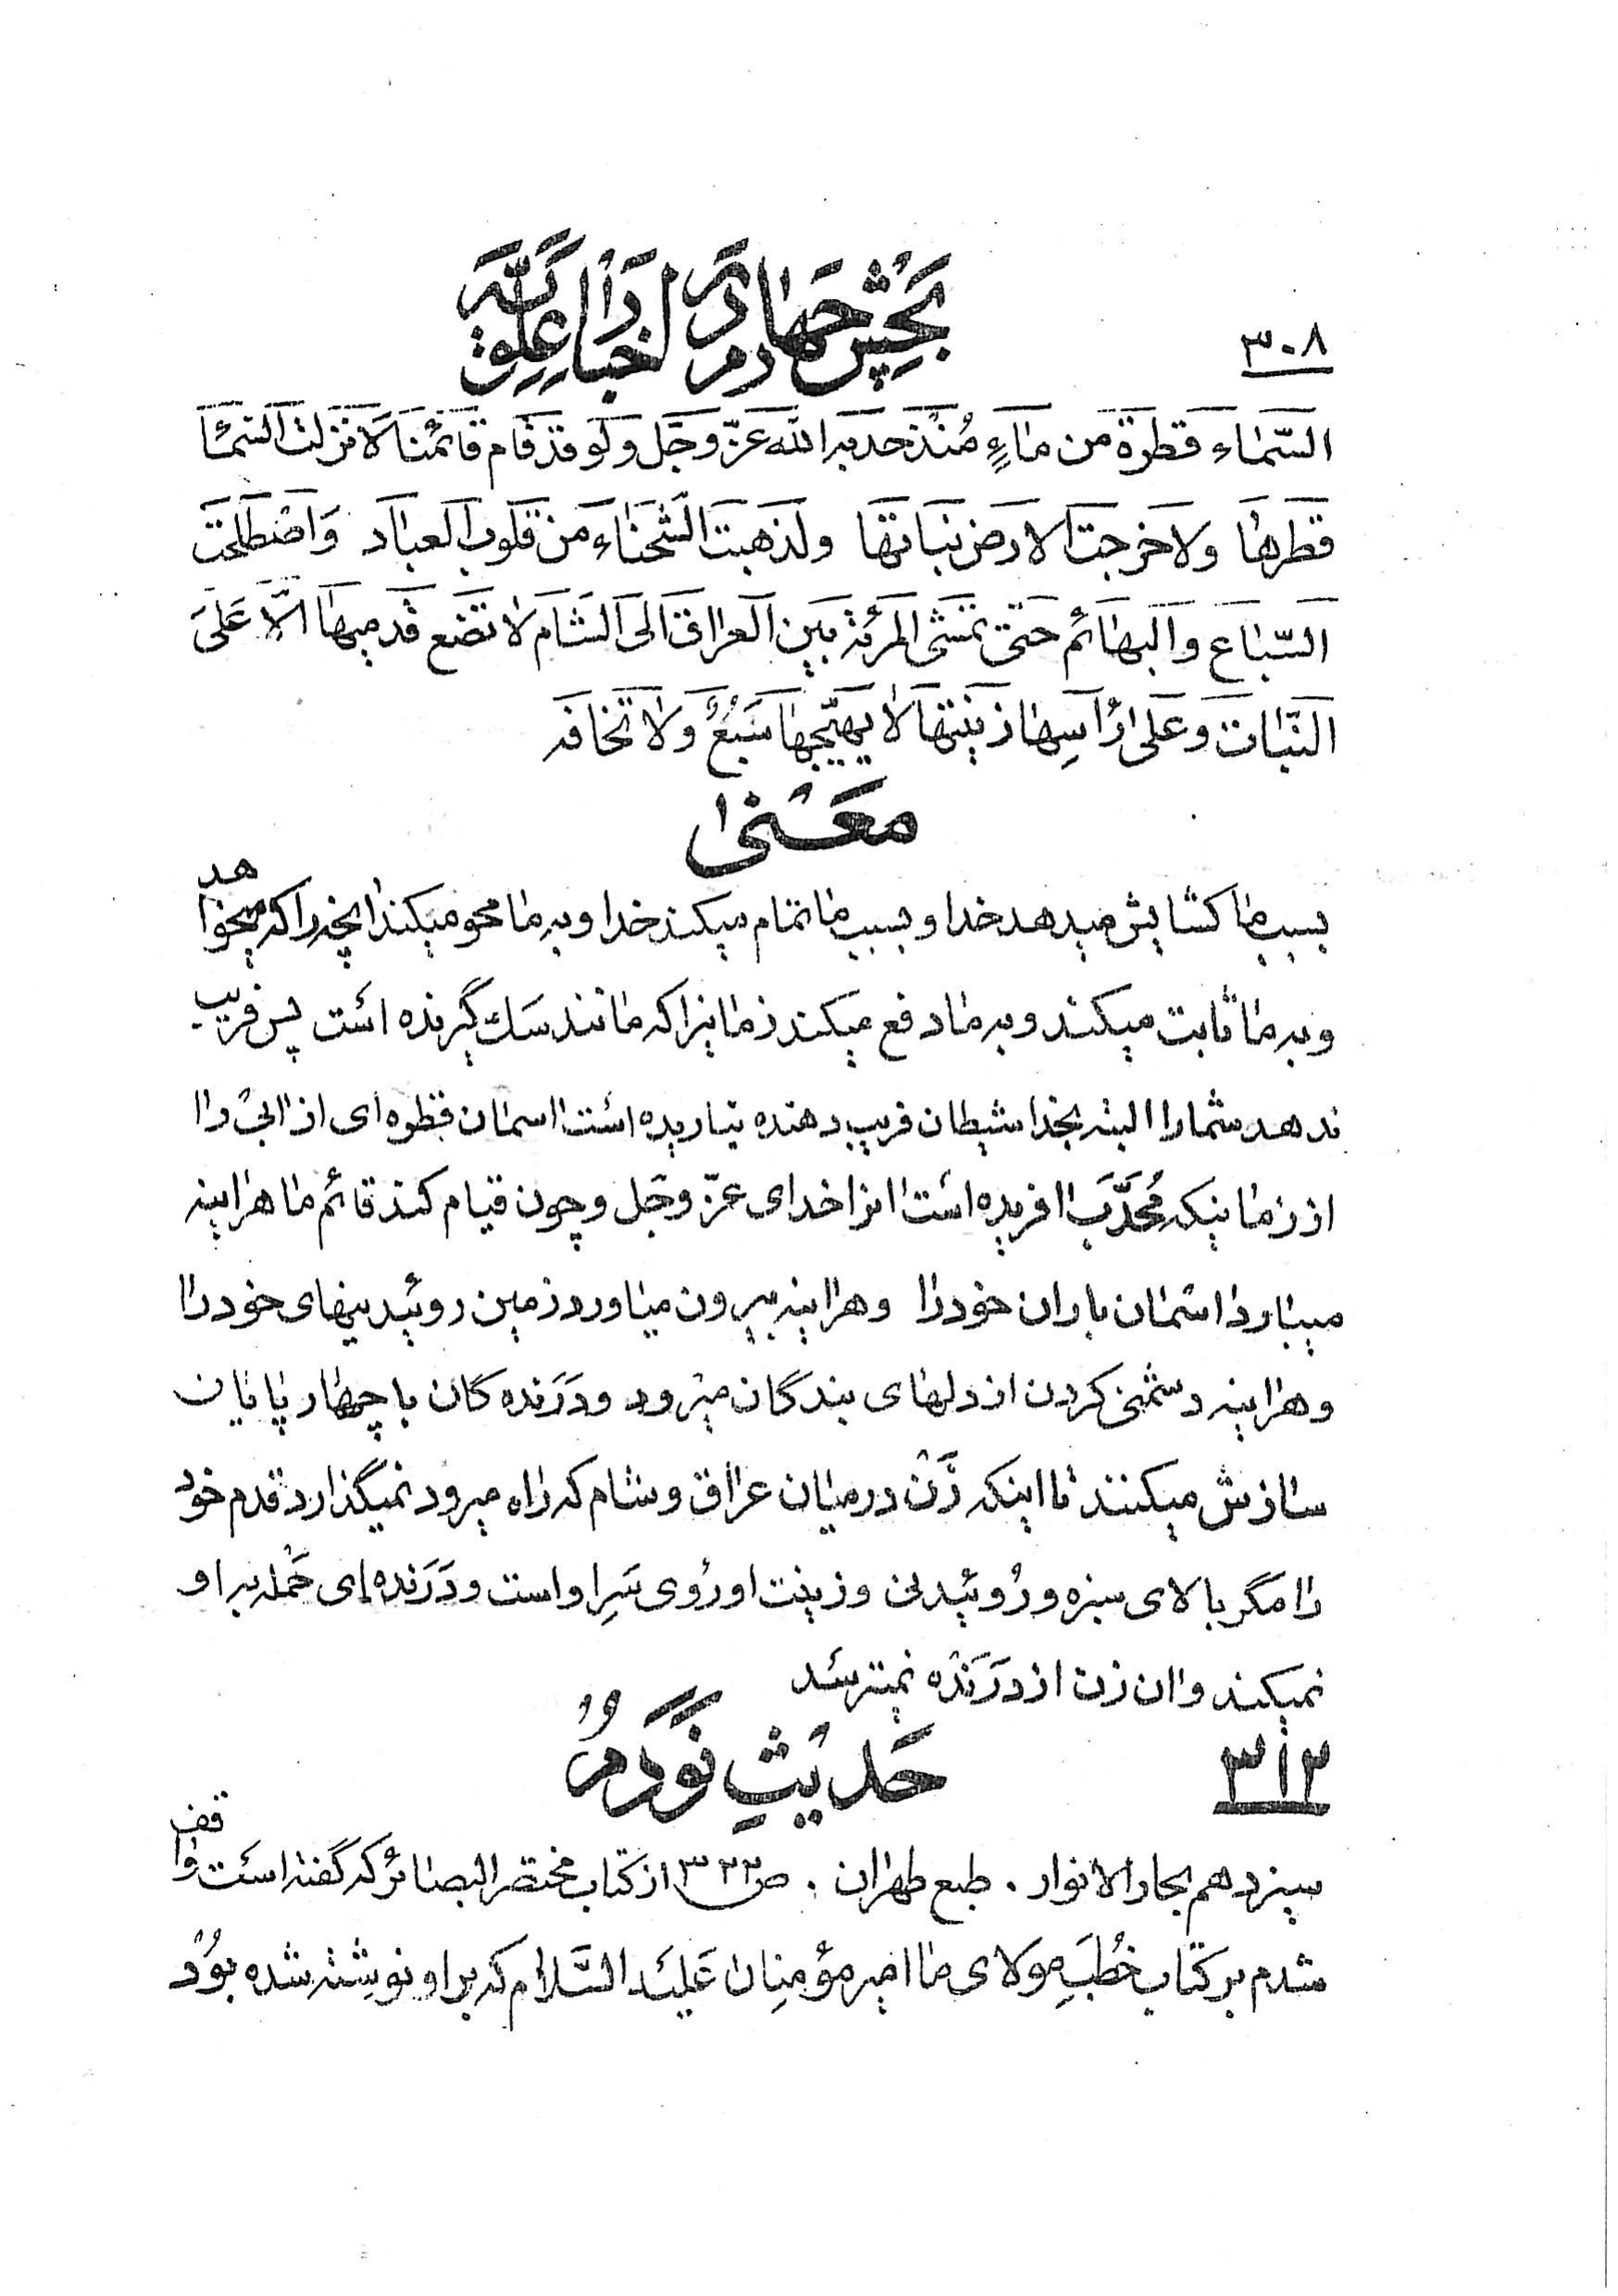 ۳۰۸
بخش چهارم در اخبار علویّه
السّماء قطرة من ماءٍ مُنذ حدبه الله عزّ وجَل ولو قد قام قائمنا لَاَنزلت السّمٰا
قطرها ولاخرجت الارض نباتها ولذهبت الشّحناء من قلوب العباد وَاصْطلحت
السّباع والبهائم حتّى تمشى المرئة بين العراق الى الشام لا تضع قدميها الّا عَلىَ
النّبات وعَلى رَأسِها زينتها لا يهيّجها سَبُعٌ ولا تخافه
معنیٰ
بسبب ما کشایش میدهد خدا و بسبب ما تمام میکند خدا و به ما محو میکند انچه را که میخواهد
و به ما ثابت میکند و به ما دفع میکند زمانیرا که مانند سك گیرنده است پس فریب
ندهد شما را البته بخدا شیطان فریب دهنده نباریده است اسمان قطره ای از ابی را
از زمانیکه مُحَدَّب افریده است انرا خدای عزّ وجَل و چون قیام کند قائم ما هراینه
میبارد اسمان باران خود را و هراینه بیرون میاورد زمین روئیدنیهای خود را
و هراینه دشمنی کردن از دلهای بندگان میرود و دَرَنده کان با چهار پایان
سازش میکنند تا اینکه زَنْ در میان عراق و شام که راه میرود نمیگذارد قدم خود
را مگر بالای سبزه و رُوئیدنی و زینت او رُوی سَرِ او است و دَرَنده ای حَمله بر او
نمیکند و ان زن از دَرَنْده نمیترسد
۳۱۲ حَدیثِ نَوَدُمْ
سیزدهم بحار الانوار . طبع طهران . ص ۳۲۳ از کتاب مختصر البصائر که گفته است واقف
شدم بر کتاب خُطَبِ مولای ما امیر مؤمنان عَلیه السَّلام که بر او نوشته شده بوُد